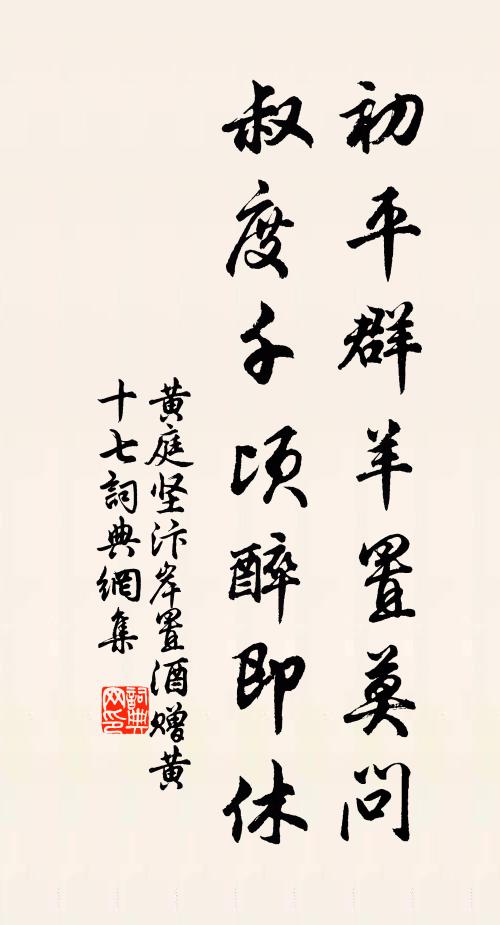 初平群羊置莫問
叔度千頃醉即休
黄庭坚汴岸置酒赠黄
十七詞典網集
詞典网印